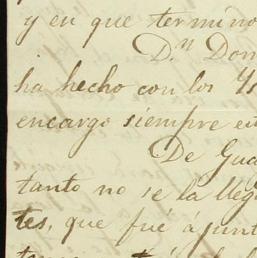 y en que termino
D.n Dom
ha hecho con los Ys
encargo siempre est
De Gua
tanto no se la lleg
tes, que fué á junt